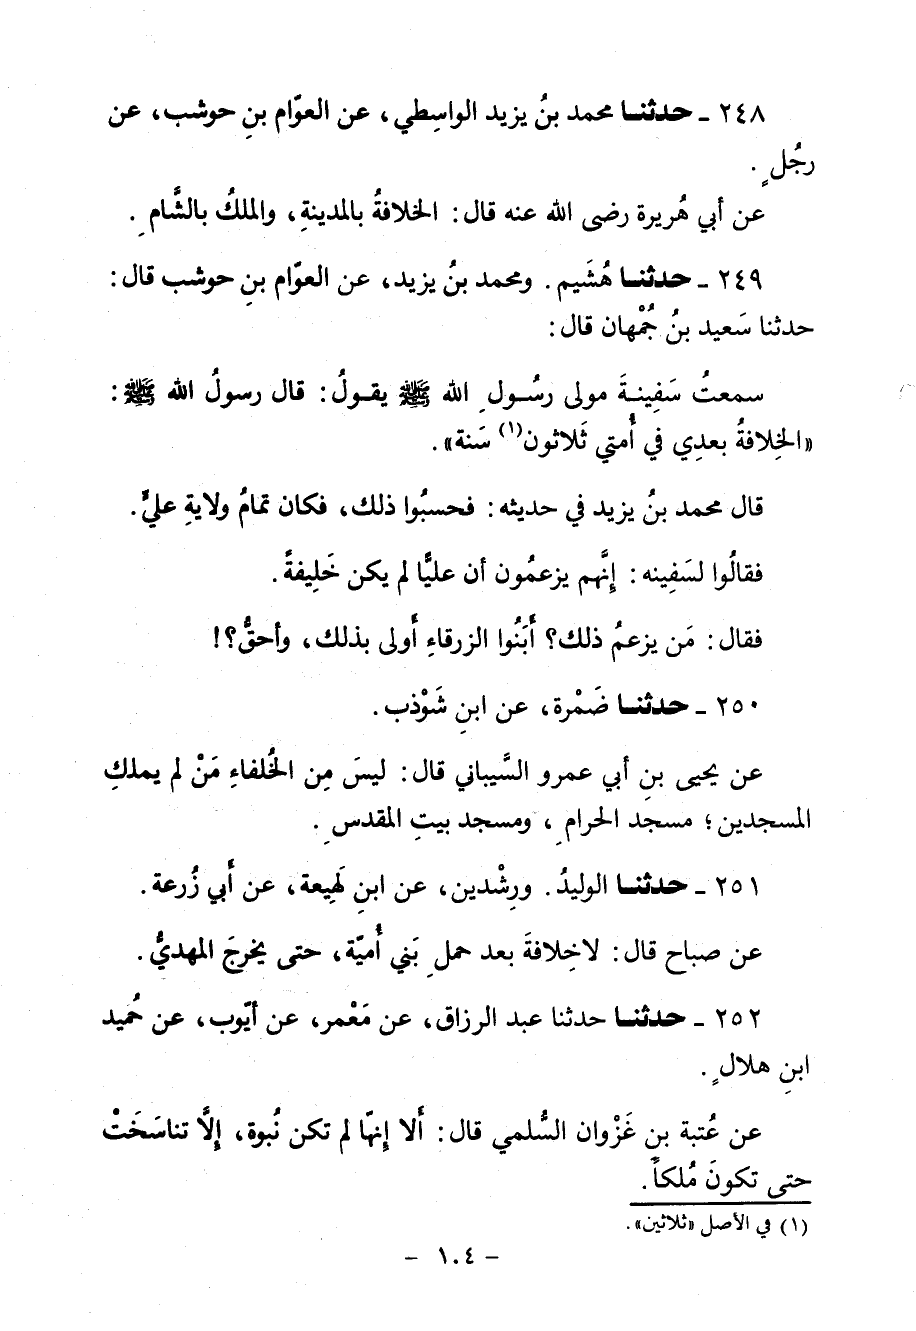 ٢٤٨ ـ حدثنـا محمد بنُ يزيد الواسِطي، عن العوّام بنِ حوشب، عن
رجُلٍ.
عن أبي هُريرة رضى الله عنه قال: الخلافةُ بالمدينةِ، والملكُ بالشَّامِ.
٢٤٩ ـ حدثنـا هُشَيم. ومحمد بنُ يزيد، عن العوّام بنِ حوشب قال:
حدثنا سَعيد بنُ جُمْهان قال:
سمعتُ سَفِينـةَ مولى رسُـولِ الله ﷺ يقـولُ: قال رسولُ الله ﷺ:
«الخِلافةُ بعدِي في أُمتي ثَلاثون(١) سَنة».
قال محمد بنُ يزيد في حديثه: فحسبُوا ذلك، فكان تمامُ ولايةِ عليٍّ.
فقالُوا لسَفِينه: إنَّهم يزعمُون أن عليًّا لم يكن خَلِيفةً.
فقال: مَن يزعمُ ذلك؟ أَبَنُوا الزرقاءِ أَولى بذلك، وأحقُّ؟!
٢٥٠ ـ حدثنـا ضَمْرة، عن ابنِ شَوْذب.
عن يحيى بنِ أبي عمرو السَّيباني قال: ليسَ مِن الخُلفاءِ مَنْ لم يملكِ
المسجدين؛ مسجد الحرامِ، ومسجد بيتِ المقدسِ.
٢٥١ ـ حدثنـا الوليدُ. ورِشْدين، عن ابنِ لَهِيعة، عن أَبي زُرعة.
عن صباح قال: لاخِلافةَ بعد حملِ بَني أُميّة، حتى يخرجَ المهديُّ.
٢٥٢ ـ حدثنـا حدثنا عبد الرزاق، عن مَعْمر، عن أيّوب، عن حُميد
ابنِ هلالٍ.
عن عُتبة بنِ غَزْوان السُّلمي قال: أَلا إنهّا لم تكن نُبوة، إلَّا تناسَخَتْ
حتى تكونَ مُلكاً.
(١) في الأصل «ثلاثين».
- ١٠٤ -